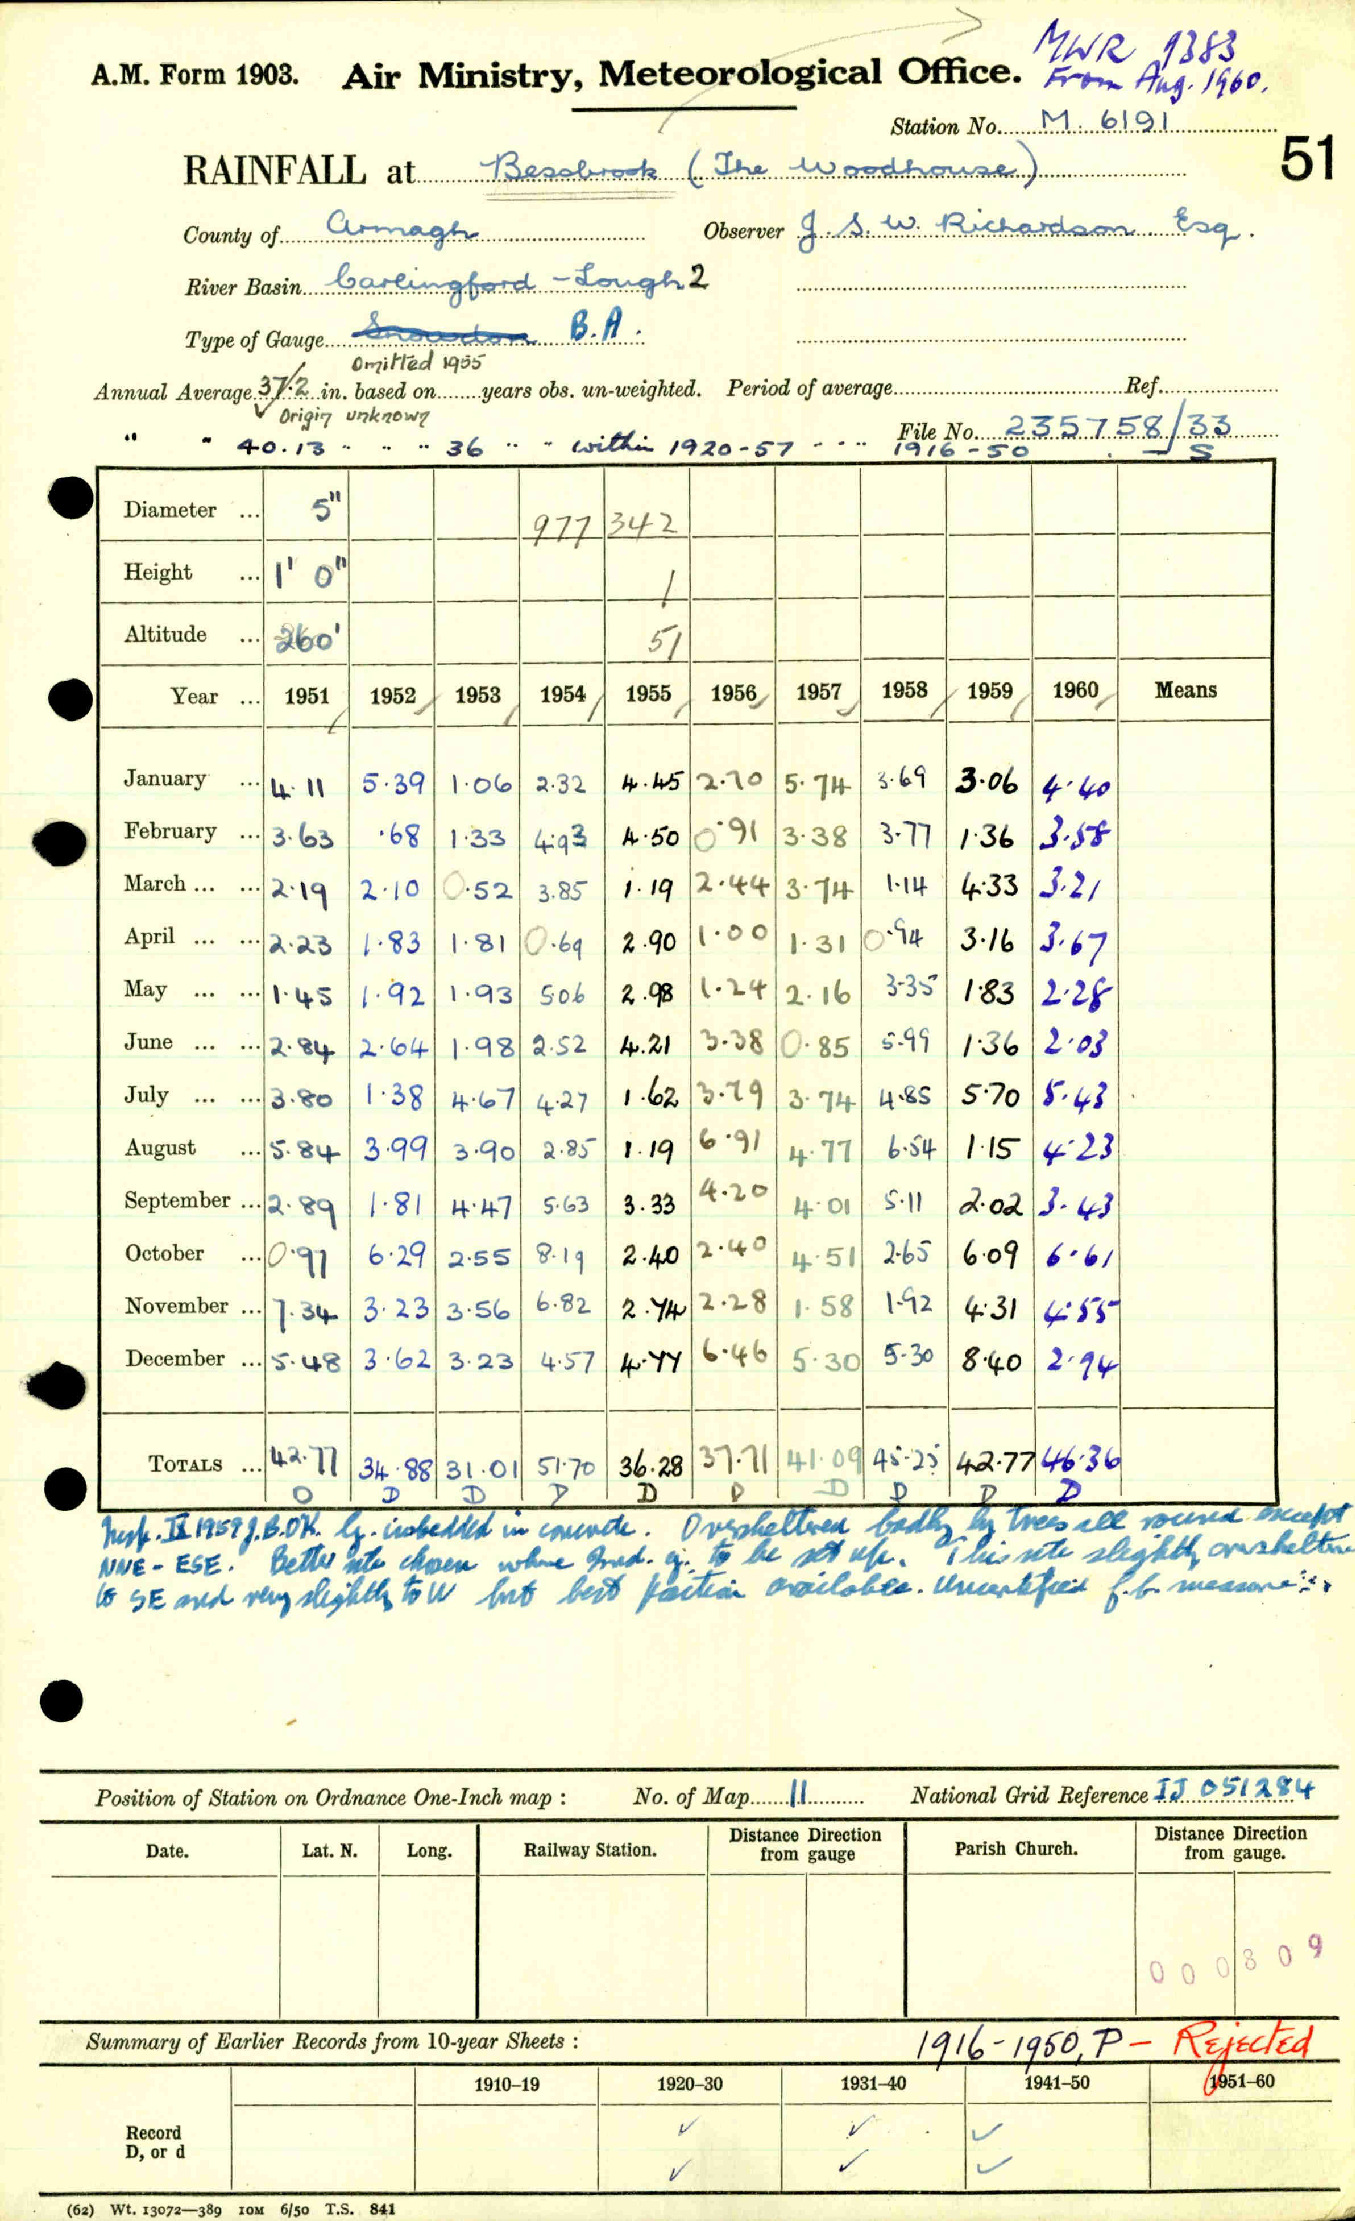 MWR 9383
From Aug. 1960.
A.M. Form 1903. Air Ministry, Meteorological Office.
Station No. M. 6191
51
RAINFALL at Bessbrook (The Woodhouse)
County of Armagh Observer J. S. W. Richardson Esq.
River Basin Carlingford - Lough 2
Type of Gauge Snowdon B.A.
Omitted 1955
Annual Average 37.2 in. based on ........ years obs. un-weighted. Period of average ........ Ref. ........
Origin unknown
File No. 235758/33
" " 40.13 " " " 36 " " within 1920-57 " " " 1916-50 S
Diameter ... 5" 977 342
Height ... 1' 0" 1
Altitude ... 260' 51
Year ... 1951 1952 1953 1954 1955 1956 1957 1958 1959 1960 Means
January ... 4.11 5.39 1.06 2.32 4.45 2.70 5.74 3.69 3.06 4.40
February ... 3.63 .68 1.33 4.93 4.50 0.91 3.38 3.77 1.36 3.58
March ... ... 2.19 2.10 0.52 3.85 1.19 2.44 3.74 1.14 4.33 3.21
April ... ... 2.23 1.83 1.81 0.69 2.90 1.00 1.31 0.94 3.16 3.67
May ... ... 1.45 1.92 1.93 5.06 2.98 1.24 2.16 3.35 1.83 2.28
June ... ... 2.84 2.64 1.98 2.52 4.21 3.38 0.85 5.99 1.36 2.03
July ... ... 3.80 1.38 4.67 4.27 1.62 3.79 3.74 4.85 5.70 5.43
August ... 5.84 3.99 3.90 2.85 1.19 6.91 4.77 6.54 1.15 4.23
September ... 2.89 1.81 4.47 5.63 3.33 4.20 4.01 5.11 2.02 3.43
October ... 0.97 6.29 2.55 8.19 2.40 2.40 4.51 2.65 6.09 6.61
November ... 7.34 3.23 3.56 6.82 2.74 2.28 1.58 1.92 4.31 4.55
December ... 5.48 3.62 3.23 4.57 4.77 6.46 5.30 5.30 8.40 2.94
TOTALS ... 42.77 34.88 31.01 51.70 36.28 37.71 41.09 45.25 42.77 46.36
D D D D D D D D D D
Insp. IX 1959 J.B. OK. G. imbedded in concrete. Oversheltered badly by trees all round except
NNE - ESE. Better site chosen where to be set up. This site slightly overshelter
to SE and very slightly to W but best position available. Uncertified measure
Position of Station on Ordnance One-Inch map : No. of Map 11 National Grid Reference IJ 051284
Date. Lat. N. Long. Railway Station. Distance Direction from gauge Parish Church. Distance Direction from gauge.
000809
Summary of Earlier Records from 10-year Sheets : 1916-1950, P - Rejected
1910–19 1920–30 1931–40 1941–50 1951–60
Record ✓ ✓ ✓
D, or d ✓ ✓ ✓
(62) Wt. 13072—389 10M 6/50 T.S. 841